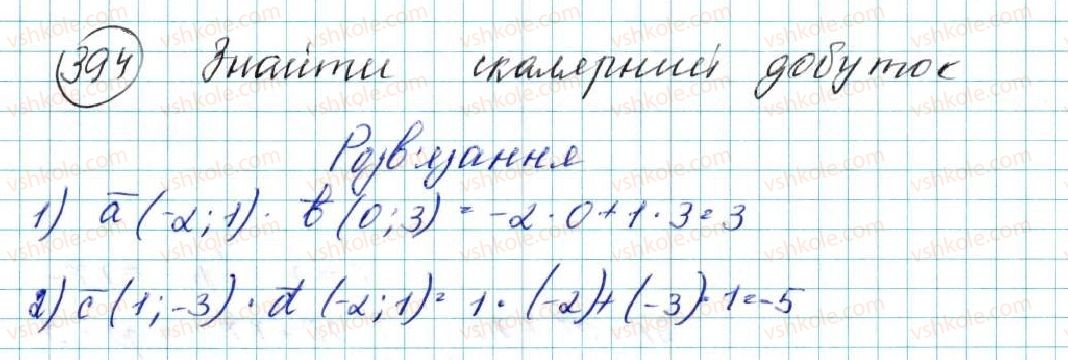 394 Знайти скалярний добуток
Розв'язання
1) a̅ (-2; 1) · b̅ (0; 3) = -2 · 0 + 1 · 3 = 3
2) c̅ (1; -3) · d̅ (-2; 1) = 1 · (-2) + (-3) · 1 = -5